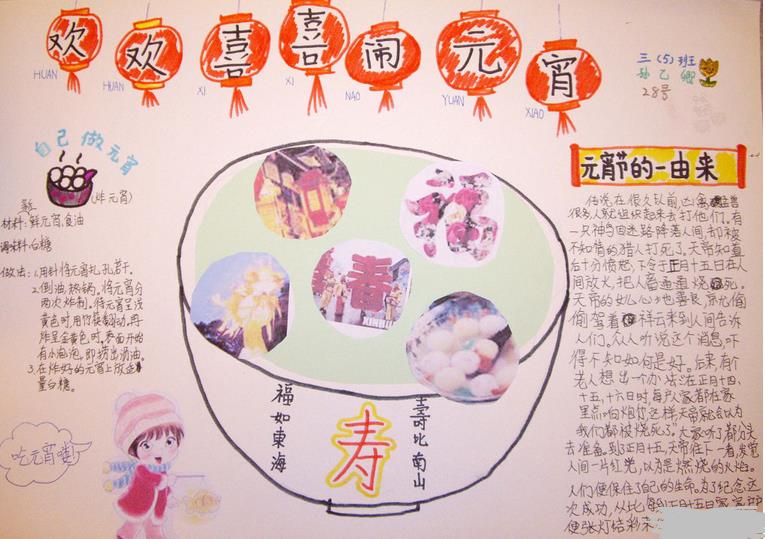 欢欢喜喜闹元宵
HUAN HUAN XI XI NAO YUAN XIAO
三(5)班
孙乙卿
28号
自己做元宵
(炸元宵)
材料:鲜元宵,食油
调味料:白糖
做法:1.用针将元宵扎孔若干。
2.倒油,热锅。将元宵分
两次炸制。待元宵呈浅
黄色时,用竹筷翻动,再
炸呈金黄色时,表面开始
有小泡泡,即捞出沥油。
3.在炸好的元宵上放适
量白糖。
吃元宵喽!
春
福如東海
寿
壽比南山
元宵节的一由来
传说在很久以前,凶禽
很多,人就组织起来去打他们。有
一只神鸟因迷路降落人间,却被
不知情的猎人打死了。天帝知道
后十分愤怒,下令于正月十五日在人
间放火,把人畜通通烧死。
天帝的女儿心地善良,
偷驾着祥云来到人间告诉
人们。众人听说这个消息,吓
得不知如何是好。后来,有个
老人想出一个办法:在正月十四、
十五、十六日时每户人家都在家
里点响炮竹这样,天帝就会以为
我们都被烧死了。大家听了都
去准备。到了正月十五,天帝往下一看,发觉
人间一片红光,以为是燃烧的火焰。
人们便保住了自己的生命。为了纪念这
次成功,从此每到正月十五日家家
便张灯结彩